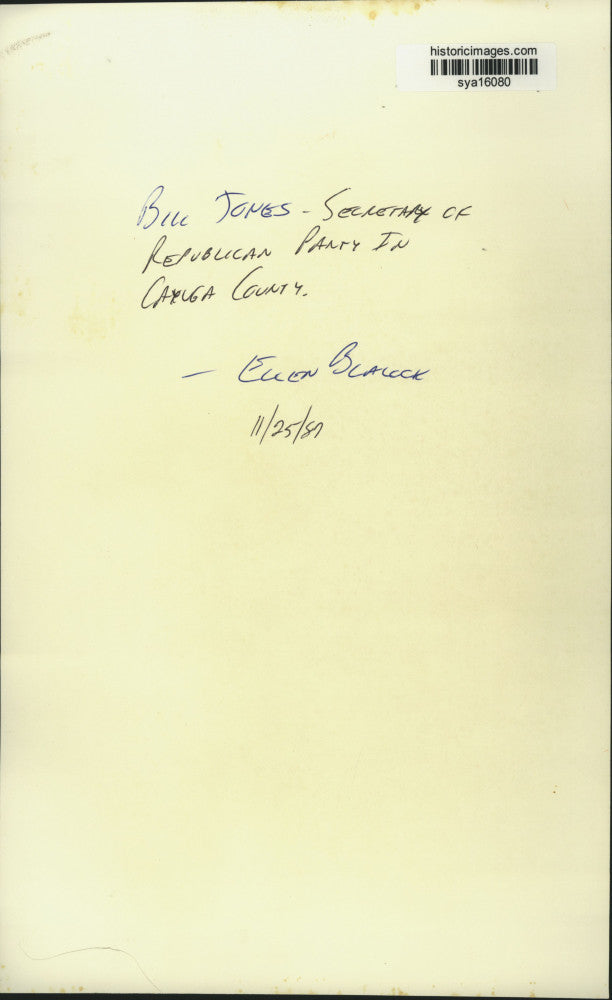 historicimages.com
sya16080
Bill Jones - Secretary of
Republican Party In
Cayuga County.
- Ellen Blalock
11/25/87